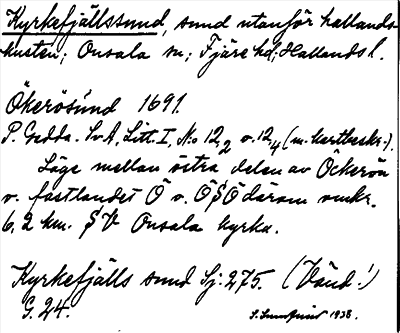 Kyrkefjällssund, sund utanför hallands-
kusten; Onsala sn; Fjäre hd; Hallands l.
Ökerösund 1691.
P. Gedda. SvA, Litt. I, No 12,2 o. 12,4 (m. kartbeskr.).
Läge mellan östra delen av Ockerön
o. fastlandet Ö o. ÖSÖ därom omkr.
6,2 km. SV Onsala kyrka.
Kyrkefjälls sund Sj: 275. (Vänd!)
G. 24.
1938.